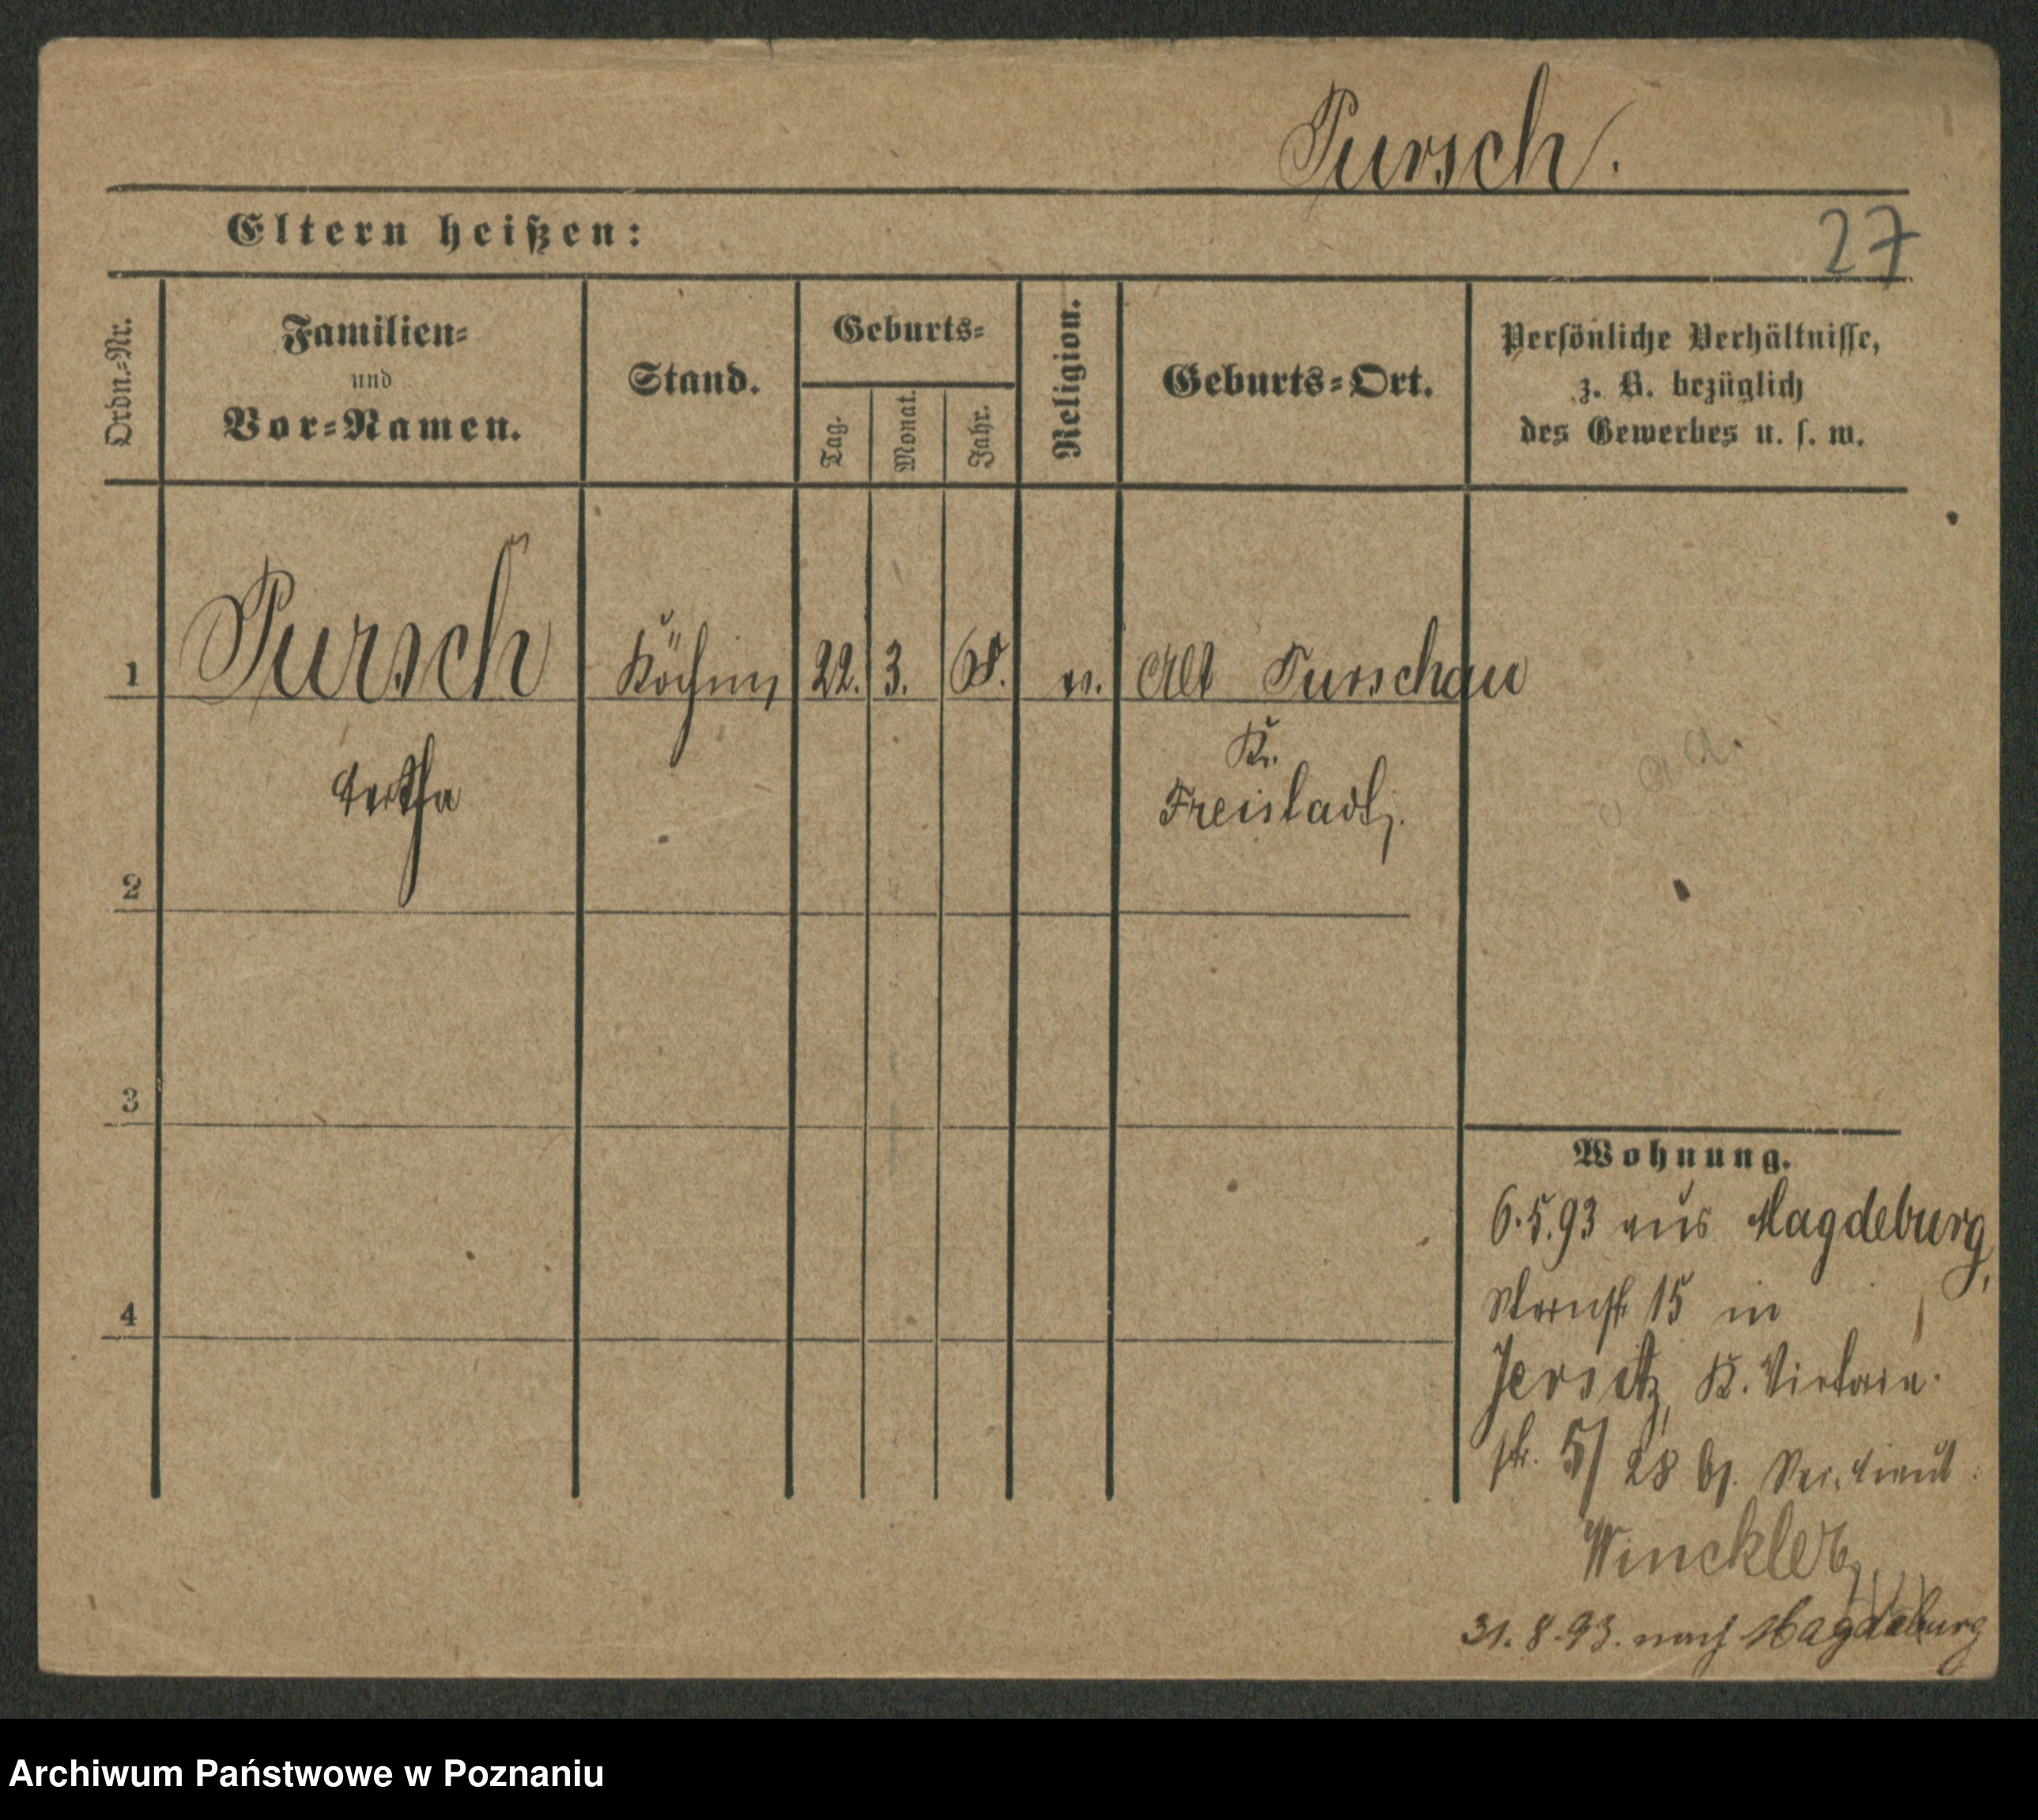 Pursch.
Eltern heißen:
27
Ordn.-Nr.
Familien-
und
Vor-Namen.
Stand.
Geburts-
Tag.
Monat.
Jahr.
Religion.
Geburts-Ort.
Persönliche Verhältnisse,
z. B. bezüglich
des Gewerbes u. s. w.
1 Pursch Köchin 22. 3. 68. ev. Alt Turschau
Kr.
Freistadt.
2
3
4
Wohnung.
6.5.93 aus Magdeburg,
15 in
Jersitz, K. Victoria-
str. 5/ 28 b/.
Winckler
31.8.93. nach Magdeburg
Archiwum Państwowe w Poznaniu